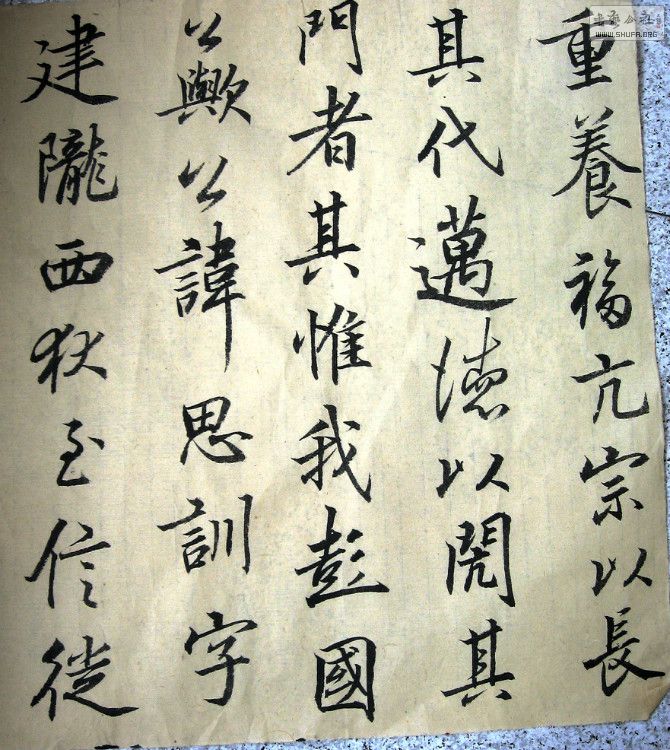 重養福亢宗以長
其代邁德以閌其
門者其惟我彭國
公歟公諱思訓字
建隴西狄至信徙
書藝公社
WWW.SHUFA.ORG